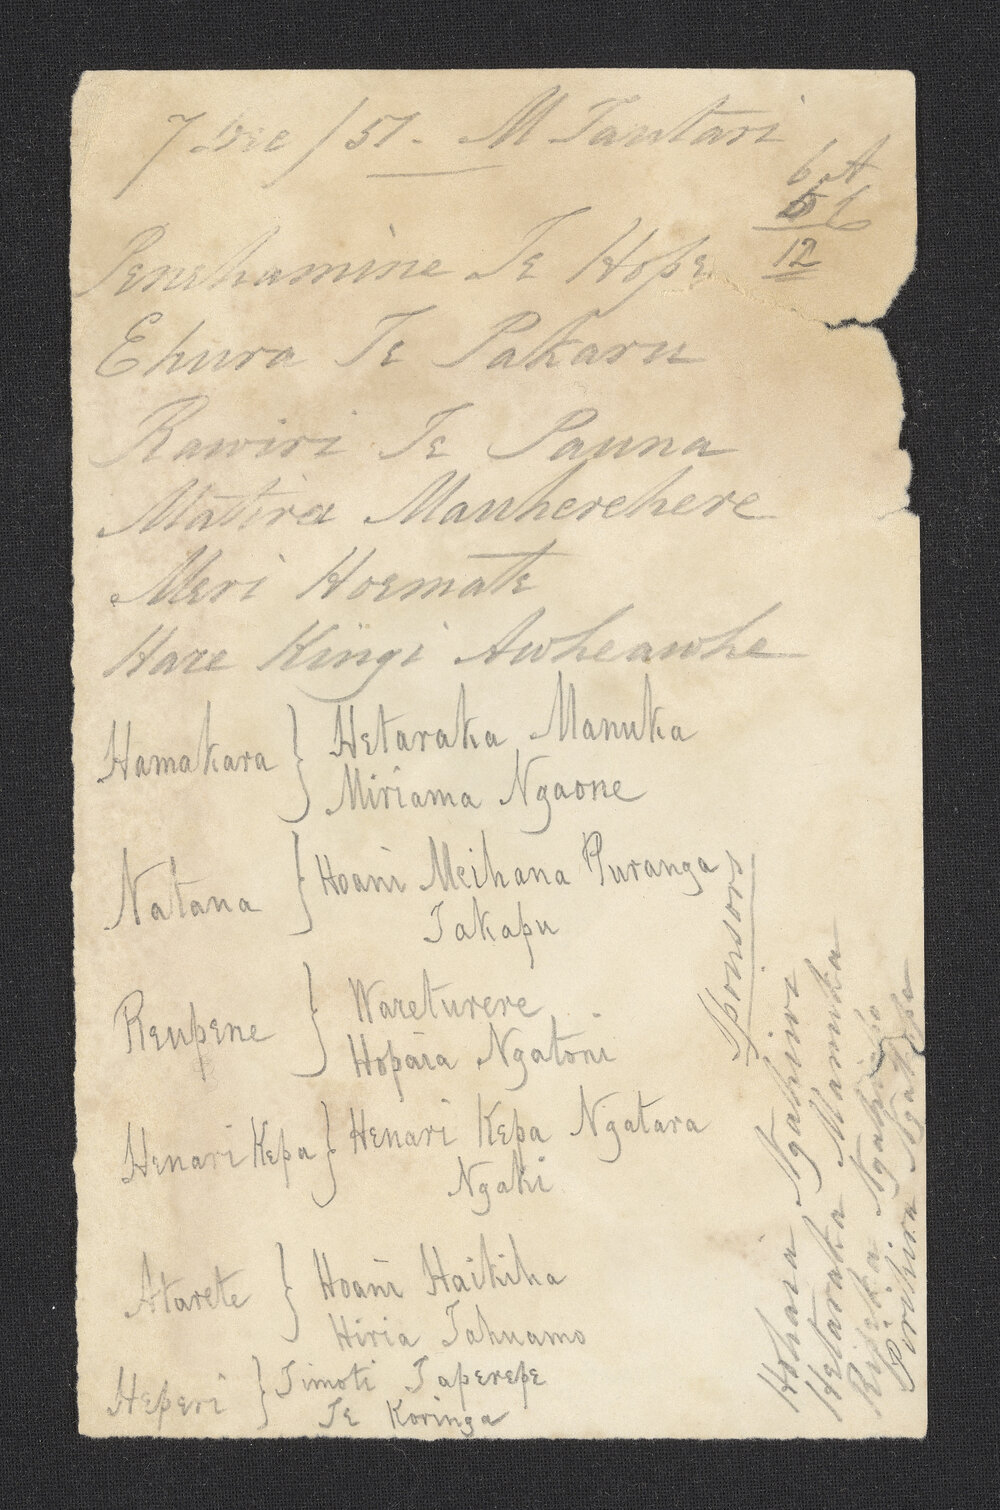 7 Dec /51. M Tautari
6 A
6 C
12
Penehamine Te Hope
Ehura Te Pakaru
Rawiri Te Pauna
Matira Mauherehere
Meri Hoemate
Hare Kingi Awheawhe
Hamakara } Hetaraka Manuka
Miriama Ngaone
Natana } Hoani Meihana Puranga
Takapu
Reupene } Wareturere
Hopaia Ngatoni
Henari Kepa } Henari Kepa Ngatara
Ngaki
Atarete } Hoani Haikiha
Hiria Tahuamo
Heperi } Timoti Taperepe
Te Koringa
Sponsors
Hohaia Ngahiwi
Hetaraka Manuka
Ripeka
Pirihira Ngatope